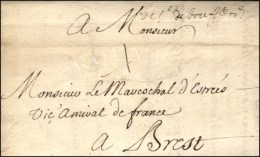 A Monsieur
Monsieur Le Marechal d'Estreés
Vice Amiral de france
A Brest